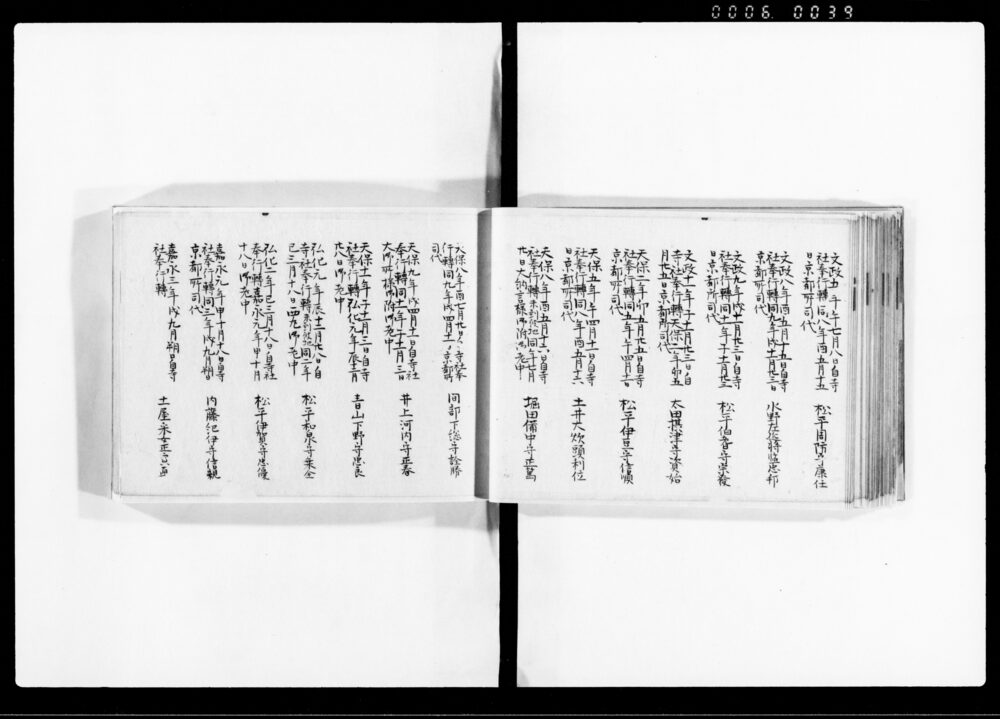 0006 0039
文政五年午七月八日自寺
社奉行轉同八年酉五月十五
日京都所司代
松平周防守康任
文政八年酉五月十五日自寺
社奉行轉同九年戌十一月廿三日
京都所司代
水野左近将監忠邦
文政九年戌十一月廿三日自寺
社奉行轉同十一年子十一月廿二
日京都所司代
松平伯耆守宗發
文政十一年子十一月廿三日自
寺社奉行轉天保二年卯五
月廿五日京都所司代
太田摂津守資始
天保二年卯五月廿五日自寺
社奉行轉同五年午四月十一日
京都所司代
松平伊豆守信順
天保五年午四月十一日自寺
社奉行轉同八年酉五月十六
日京都所司代
土井大炊頭利位
天保八年酉五月十六日自寺
社奉行轉 同年七月
廿日大納言様御附御老中
堀田備中守正篤
天保八年酉七月廿日自寺社奉
行轉同九年戌四月十一日京都所
司代
間部下総守詮勝
天保九年戌四月十一日自寺社
奉行轉同十一年子十一月三日
大御所様御附御老中
井上河内守正春
天保十一年子十一月三日自寺
社奉行轉弘化元年辰十二月
廿八日御老中
青山下野守忠良
弘化元年辰十二月廿八日自
寺社奉行轉 同二年
巳三月十八日西丸御老中
松平和泉守乗全
弘化二年巳三月十八日自寺社
奉行轉嘉永元年申十月
十八日御老中
松平伊賀守忠優
嘉永元年申十月十八日自寺
社奉行轉同三年戌九月朔日
京都所司代
内藤紀伊守信親
嘉永三年戌九月朔日自寺
社奉行轉
土屋采女正寅直